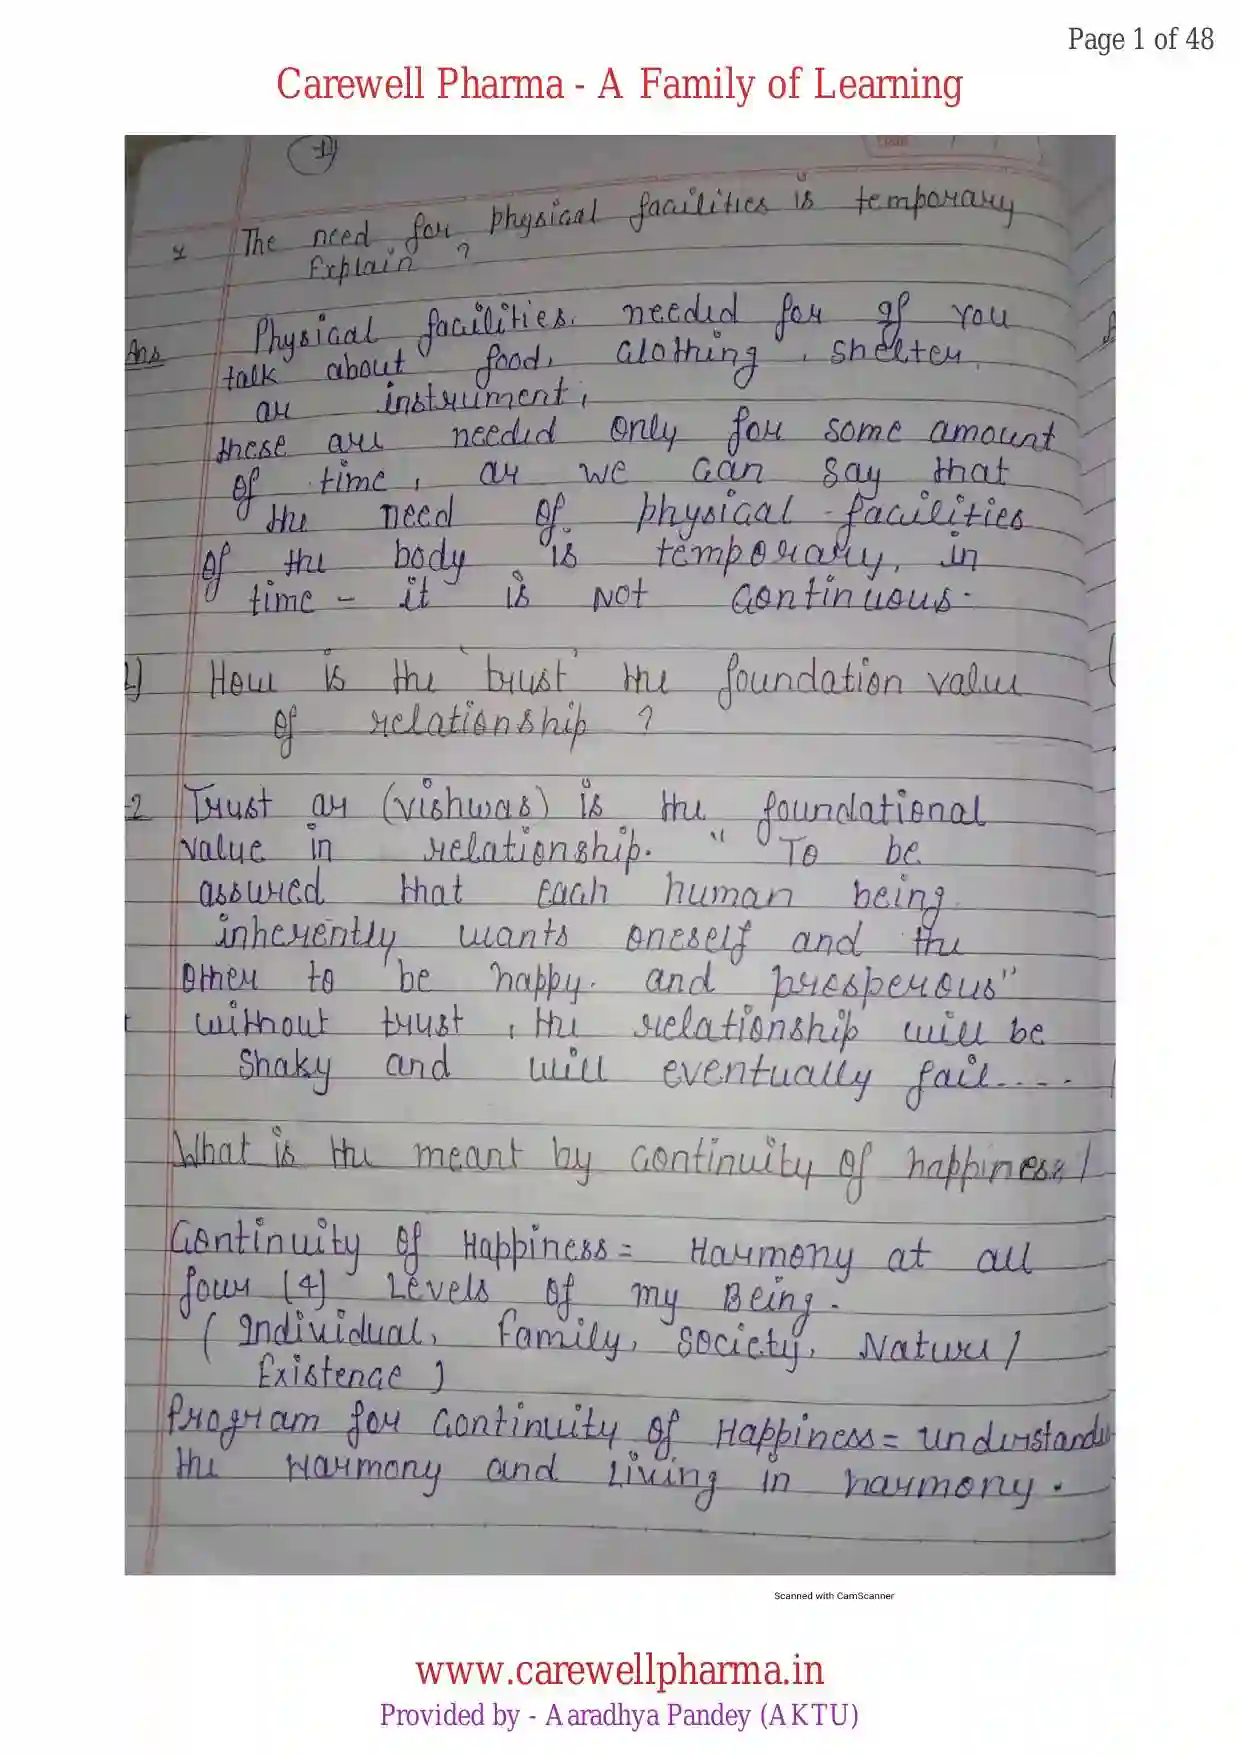 Page 1 of 48
Carewell Pharma - A Family of Learning
1)
The need for physical facilities is temporary
Explain ?
Ans Physical facilities. needed for of you
talk about food, clothing, shelter
or instrument,
these are needed only for some amount
of time, or we can say that
the need of physical facilities
of the body is temporary, in
time - it is not continuous.
How is the 'trust' the foundation value
of relationship ?
2 Trust or (vishwas) is the foundational
value in relationship. " To be
assured that each human being
inherently wants oneself and the
other to be happy. and prosperous"
without trust, the relationship will be
shaky and will eventually fail....
What is the meant by continuity of happiness/
Continuity of Happiness = Harmony at all
four (4) Levels of my Being.
( Individual, family, society, Nature/
Existence )
Program for continuity of Happiness = understand
the Harmony and Living in harmony.
Scanned with CamScanner
www.carewellpharma.in
Provided by - Aaradhya Pandey (AKTU)